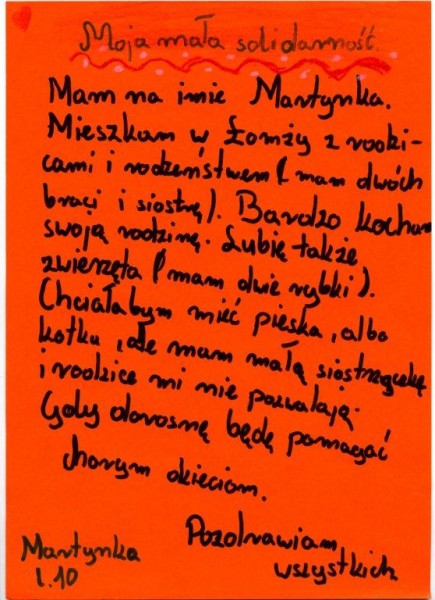 Moja mała solidarność.
Mam na imie Martynka.
Mieszkam w Łomży z rodzi-
cami i rodzeństwem (mam dwóch
braci i siostrę). Bardzo kocham
swoją rodzinę. Lubię także
zwierzęta (mam dwie rybki).
Chciałabym mieć pieska, albo
kotka, ale mam małą siostrzyczkę
i rodzice mi nie pozwalają.
Gdy dorosnę będę pomagać
chorym dzieciom.
Pozdrawiam
wszystkich
Martynka
l.10